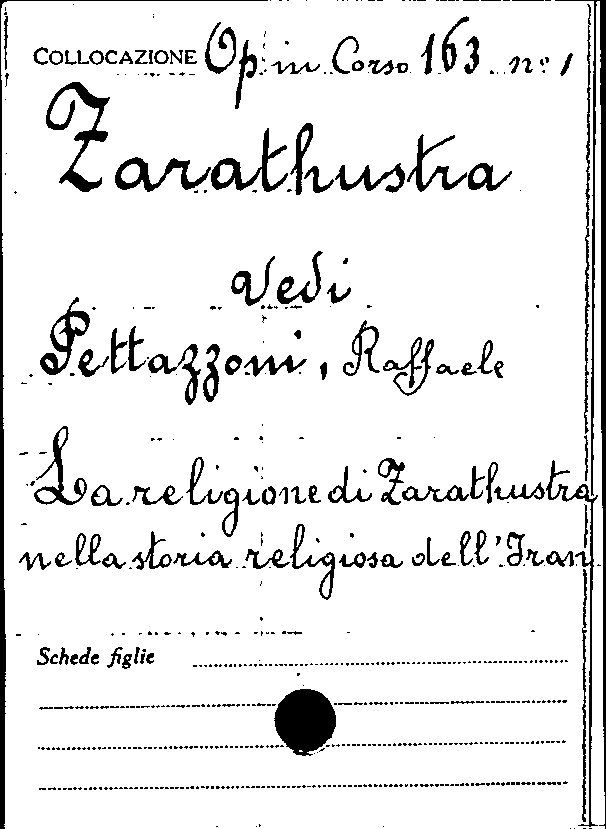 COLLOCAZIONE Op. in Corso 163. nº 1
Zarathustra
Vedi
Pettazzoni, Raffaele
La religione di Zarathustra
nella storia religiosa dell'Iran
Schede figlie